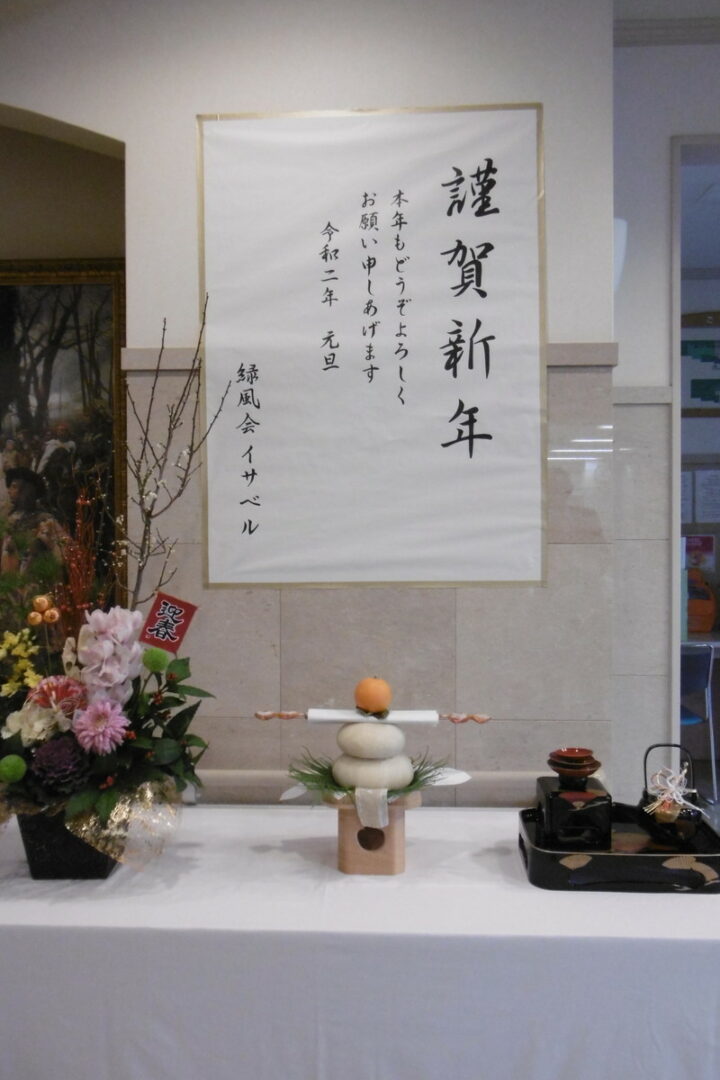 謹賀新年
本年もどうぞよろしく
お願い申しあげます
令和二年 元旦
緑風会 イサベル
迎春